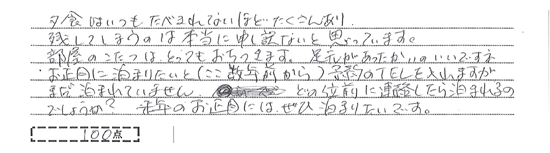 夕食はいつもたべきれないほどたくさんあり、
残してしまうのは本当に申し訳ないと思っています。
部屋のこたつは、とってもおちつきます。足元があったかいのいいですネ
お正月に泊まりたいと(ここ数年前から)予約のTELを入れますが
まだ泊まれていません。どの位前に連絡したら泊まれるの
でしょうか? 来年のお正月にはぜひ泊まりたいです。
100点